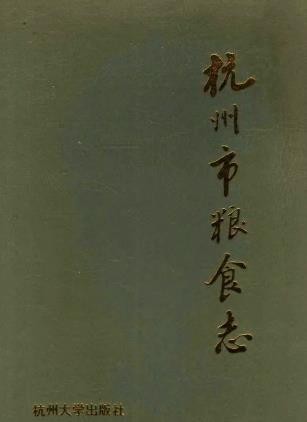 杭州市粮食志
杭州大学出版社